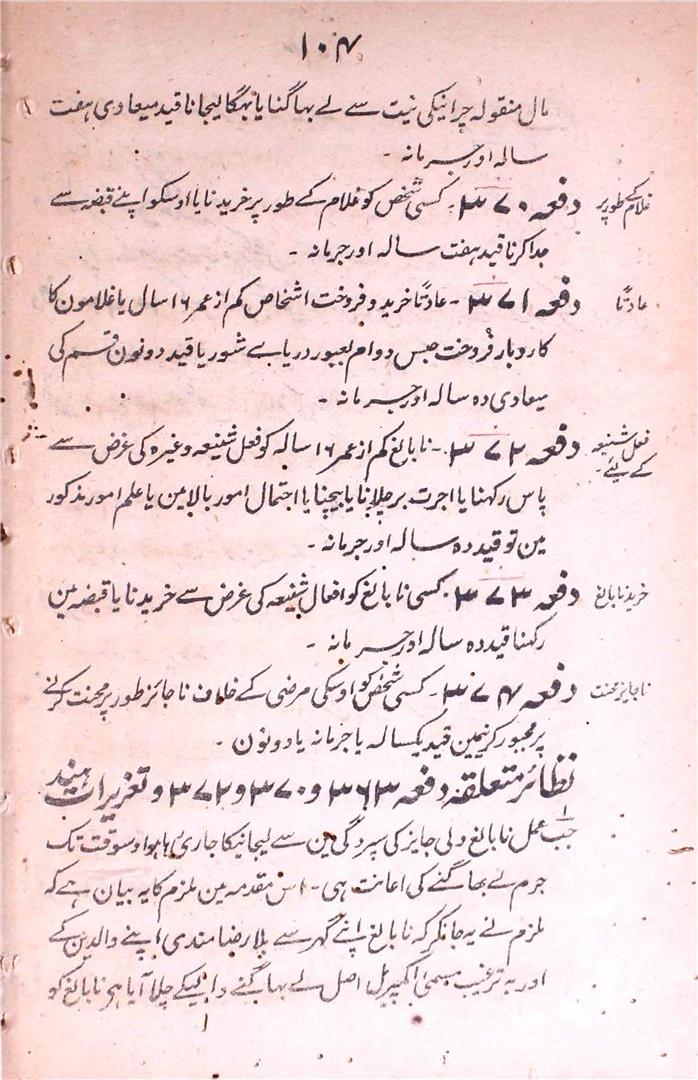 ۱۰۴
مال منقولہ چرانیکی نیت سے لے بہاگنا یا بہگا لیجانا قید میعادی ہفت
سالہ اور جرمانہ ۔
غلام کے طور پر
دفعہ ۳۷۰ ۔ کسی شخص کو غلام کے طور پر خریدنا یا اوسکو اپنے قبضہ سے
جدا کرنا قید ہفت سالہ اور جرمانہ ۔
عادتًا
دفعہ ۳۷۱ ۔ عادتًا خرید و فروخت اشخاص کم از عمر ۱۶ سال یا غلامون کا
کاروبار فروخت حبس دوام بعبور دریاے شور یا قید دونون قسم کی
میعادی دہ سالہ اور جرمانہ ۔
فعل شنیعہ
کے لئے ۔
دفعہ ۳۷۲ ۔ نابالغ کم از عمر ۱۶ سالہ کو فعل شنیعہ وغیرہ کی غرض سے
پاس رکہنا یا اجرت پر چلانا یا بیچنا یا احتمال امور بالا مین یا علم امور مذکور
مین تو قید دہ سالہ اور جرمانہ ۔
خرید نابالغ
دفعہ ۳۷۳ ۔ کسی نابالغ کو افعال شفیعہ کی غرض سے خریدنا یا قبضہ مین
رکہنا قید دہ سالہ اور جرمانہ ۔
ناجایز محنت
دفعہ ۳۷۴ ۔ کسی شخص کو اوسکی مرضی کے خلاف ناجائز طور پر محنت کرنے
پر مجبور کرنیمین قید یکسالہ یا جرمانہ یا دونون ۔
نظائر متعلقہ دفعہ ۳۶۳ و ۳۷۰ و ۳۷۲ و تعزیرات ہند
جب عمل نابالغ ولی جایز کی سپردگی مین سے لیجانیکا جاری رہا ہو اوسوقت تک
جرم لے بھاگنے کی اعانت ہی ۔ اس مقدمہ مین ملزم کا یہ بیان ہے کہ
ملزم نے یہ جانکر کہ نابالغ اپنے گہر سے بلا رضامندی اپنے والدین کے
اور بہ ترغیب مسمی اصل لے بہاگنے والیکے چلا آیا ہی نابالغ کو